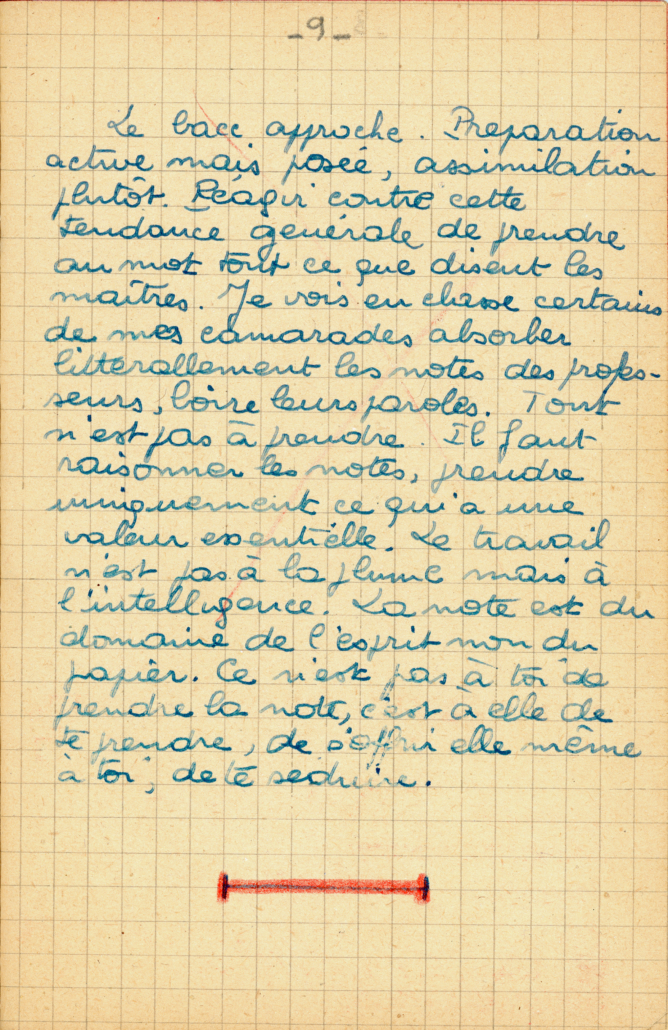 - 9 -
Le bacc approche. Preparation
active mais poseé, assimilation
plutôt. Reagir contre cette
tendance générale de prendre
au mot tout ce que disent les
maîtres. Je vois en classe certains
de mes camarades absorber
litterallement les notes des profes-
seurs, boire leurs paroles. Tout
n'est pas à prendre. Il faut
raisonner les notes, prendre
uniquement ce qui a une
valeur essentielle. Le travail
n'est pas à la plume mais à
l'intelligence. La note est du
domaine de l'esprit non du
papier. Ce n'est pas à toi de
prendre la note, c'est à elle de
te prendre, de s'offrir elle même
à toi, de te seduire.